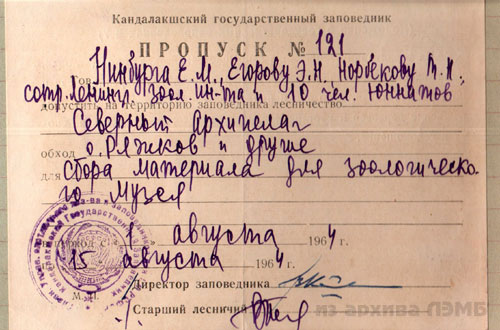 Кандалакшский государственный заповедник
ПРОПУСК № 121
Тов. Нинбурга Е.М., Егорову Э.Н., Норбекову М.Н.
сотр. Ленингр. зоол. ин-та и 10 чел. юннатов
допустить на территорию заповедника лесничество
Северный архипелаг
обход о. Ряжков и другие
для сбора материала для зоологическо-
го музея
на период с 1 августа 1964
по 15 августа 1964 г.
Директор заповедника
М.П.
Старший лесничий
из архива ЛЭМБ